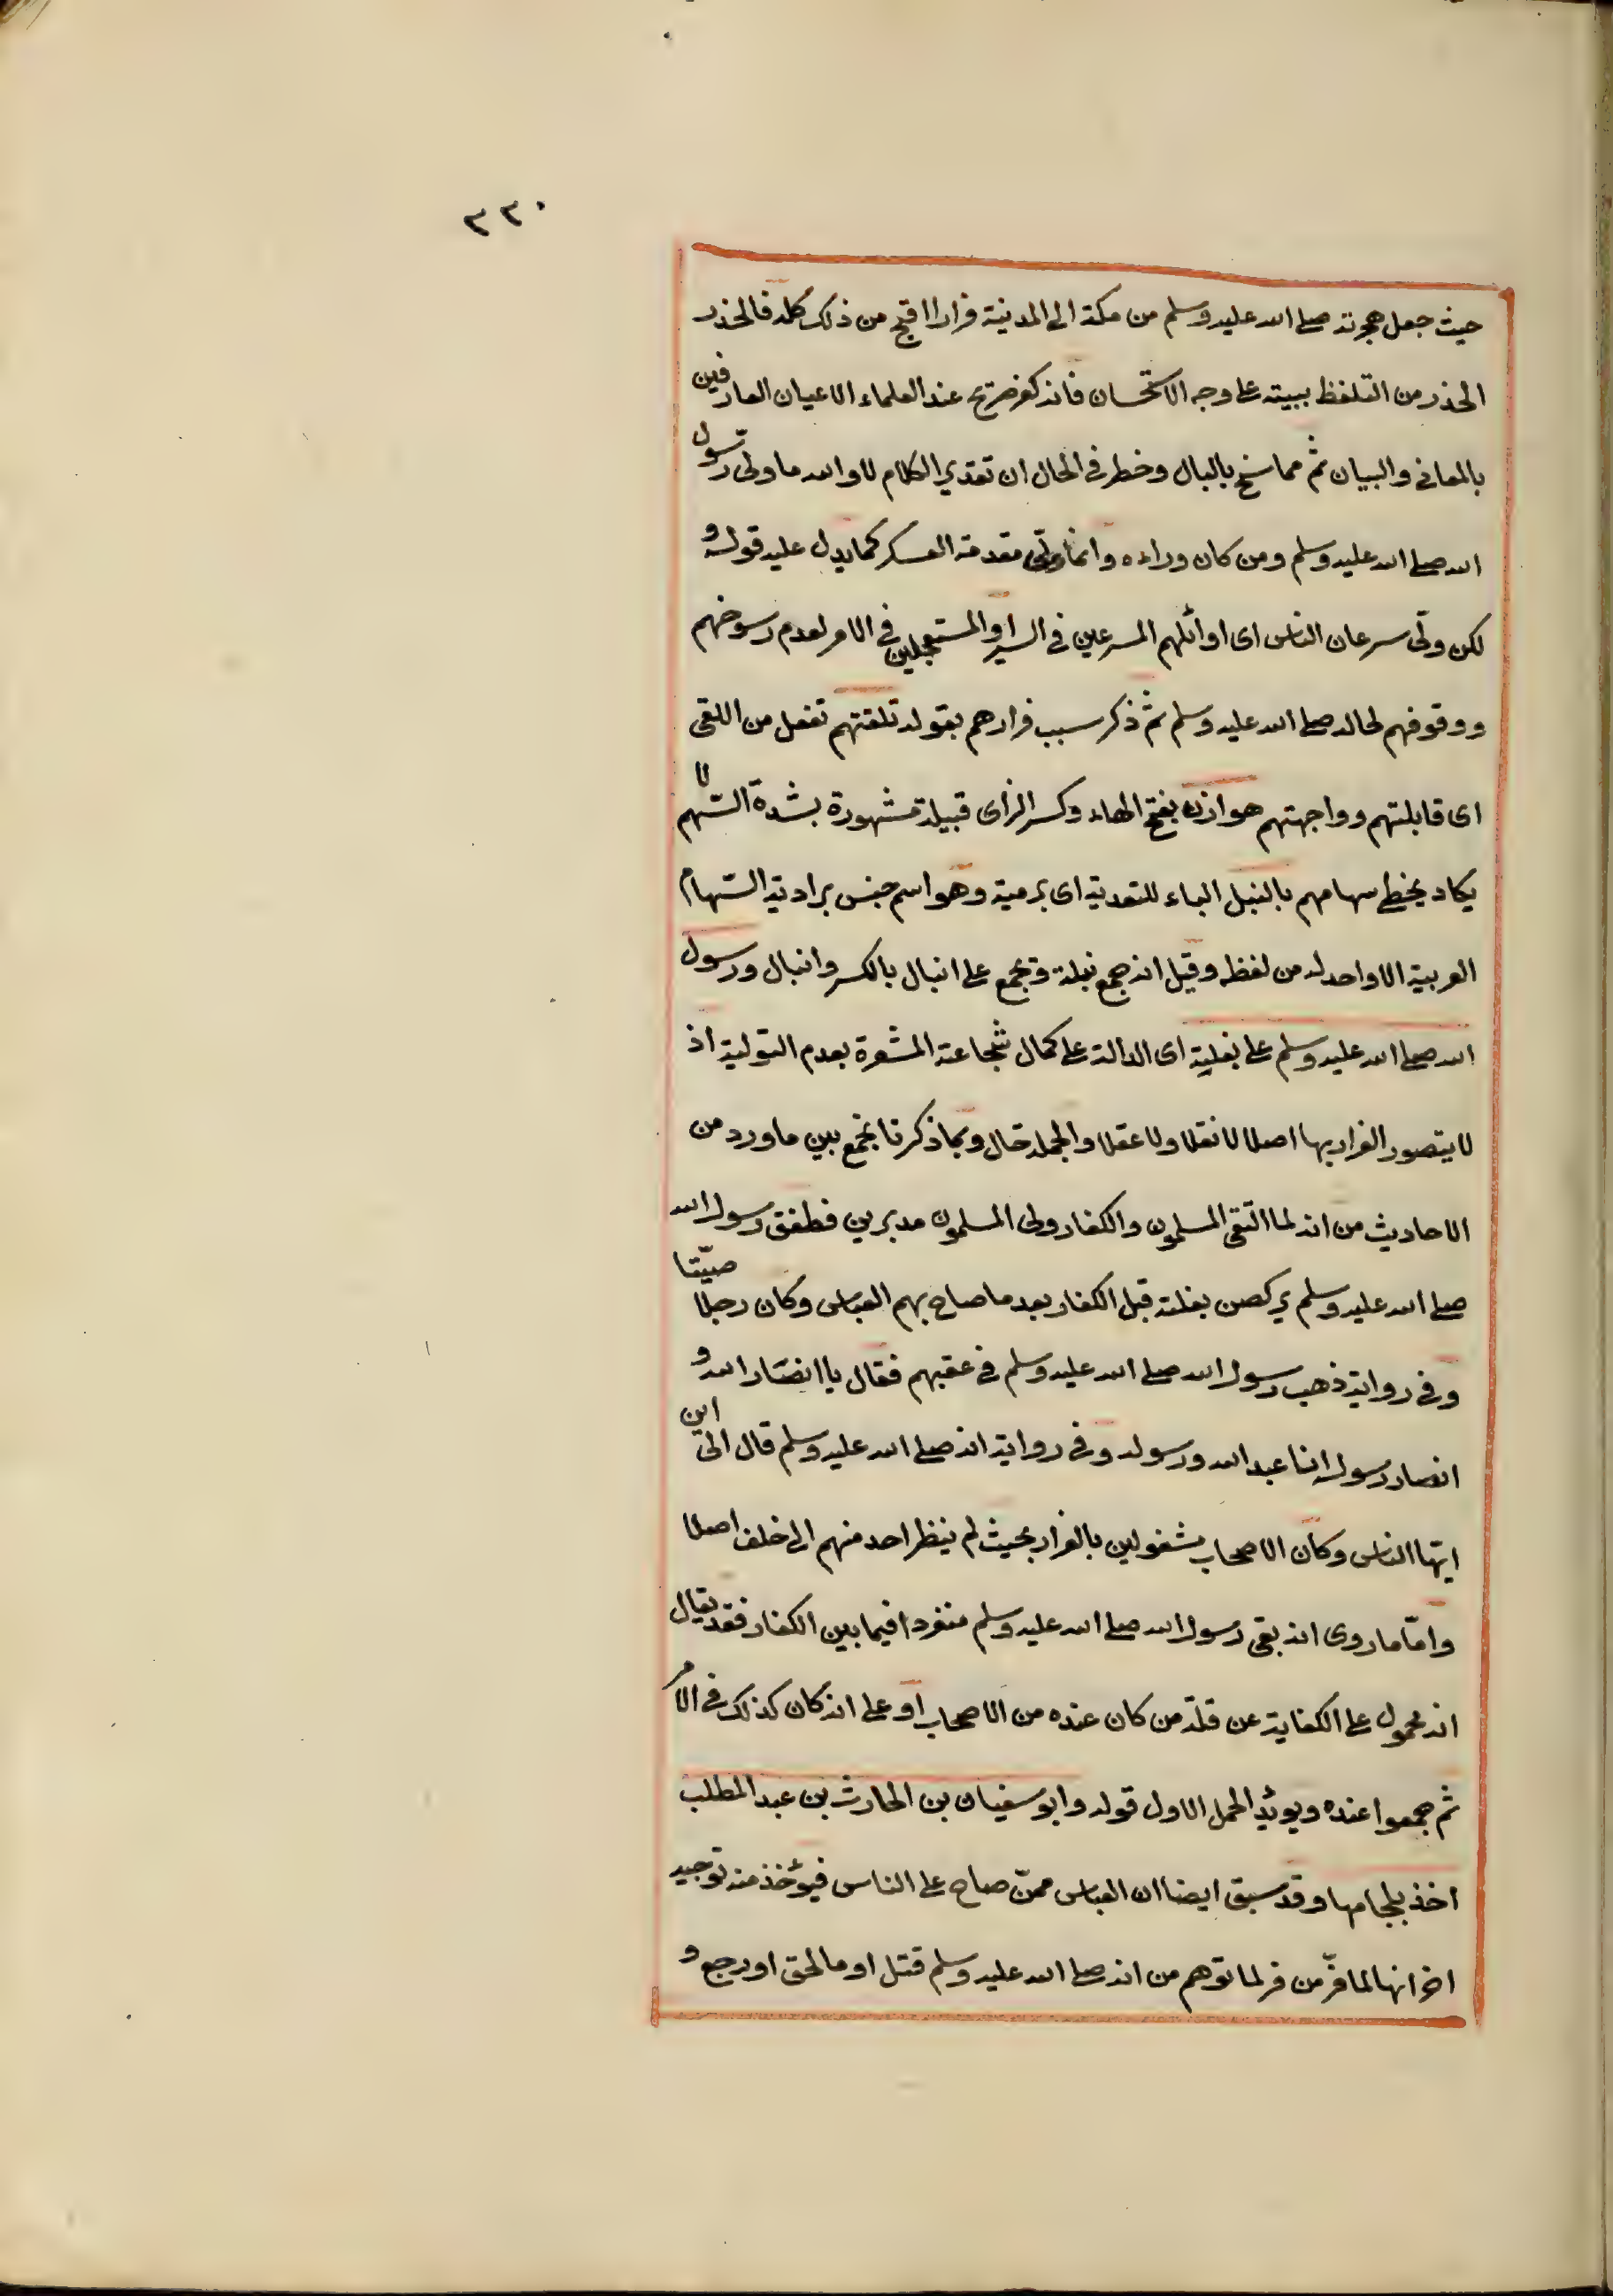 ٢٢٠
حيث جعل هجرته صلى الله عليه وسلم من مكة الى المدينة فرارا اقبح من ذلك كله فالحذر
الحذر من التلفظ ببيته على وجه الاستحسان فانه كفر صريح عند العلماء الاعيان العارفين
بالمعاني والبيان ثم مما سنح بالبال وخطر في الحال ان تقدير الكلام لا والله ما ولى رسول
الله صلى الله عليه وسلم ومن كان وراءه وانما ولّى مقدمة العسكر كما يدل عليه قوله و
لكن ولّى سرعان الناس اى اوائلهم المسرعين في السير او المستعجلين في الامر لعدم رسوخهم
ووقوفهم لحاله صلى الله عليه وسلم ثم ذكر سبب فرارهم بقوله تلقتهم تفعل من اللقى
اى قابلتهم وواجهتهم هوازن بفتح الهاء وكسر الزاى قبيلة مشهورة بشدة السّهم لا
يكاد يخطى سهامهم بالنبل الباء للتعدية اى برمية وهو اسم جنس يراد به السّهام
العربية لا واحد له من لفظه وقيل انه جمع نبلة وتجمع على انبال بالكسر وانبال ورسول
الله صلى الله عليه وسلم على بغليته اى الدالة على كمال شجاعته المشعرة بعدم التولية اذ
لا يتصور الفرار بها اصلا لا نقلا ولا عقلا والجملة حال وبما ذكرنا يجمع بين ما ورد من
الاحاديث من انه لما التقى المسلمون والكفار ولى المسلمون مدبرين فطفق رسول الله
صلى الله عليه وسلم يركض بغلته قبل الكفار بعد ما صاح بهم العباس وكان رجلا صيّتا
وفي رواية ذهب رسول الله صلى الله عليه وسلم في عقبهم فقال يا انصار الله و
انصار رسوله انا عبد الله ورسوله وفي رواية انه صلى الله عليه وسلم قال الىّ اين
ايّها الناس وكان الاصحاب مشغولين بالفرار بحيث لم ينظر احد منهم الى خلف اصلا
وامّا ما روى انه بقى رسول الله صلى الله عليه وسلم منفردا فيما بين الكفار فقد يقال
انه محمول على الكفاية عن قلّة من كان عنده من الاصحاب او على انه كان كذلك في الامر
ثم جمعوا عنده ويؤيد الحمل الاول قوله وابو سفيان بن الحارث بن عبد المطلب
اخذ بلجامها وقد سبق ايضا ان العباس ممّن صاح على الناس فيؤخذ منه توجيه
اخر انها لما فرّ من فر لما توهم من انه صلى الله عليه وسلم قتل او ما لحق او رجع و